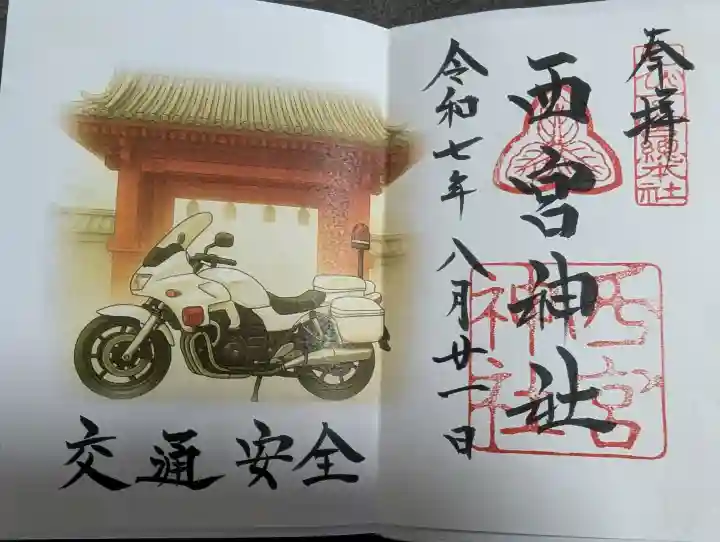 奉拝
西宮神社
令和七年八月廿一日
西宮
神社
總本社
交通安全